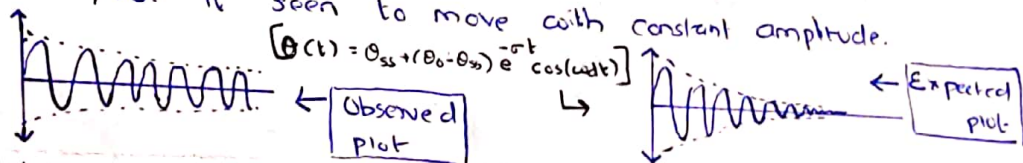 seen to move with constant amplitude.
[θ(t) = θss + (θ0 - θss) e^-σt cos(ωdt)]
← Observed plot
↳
← Expected plot